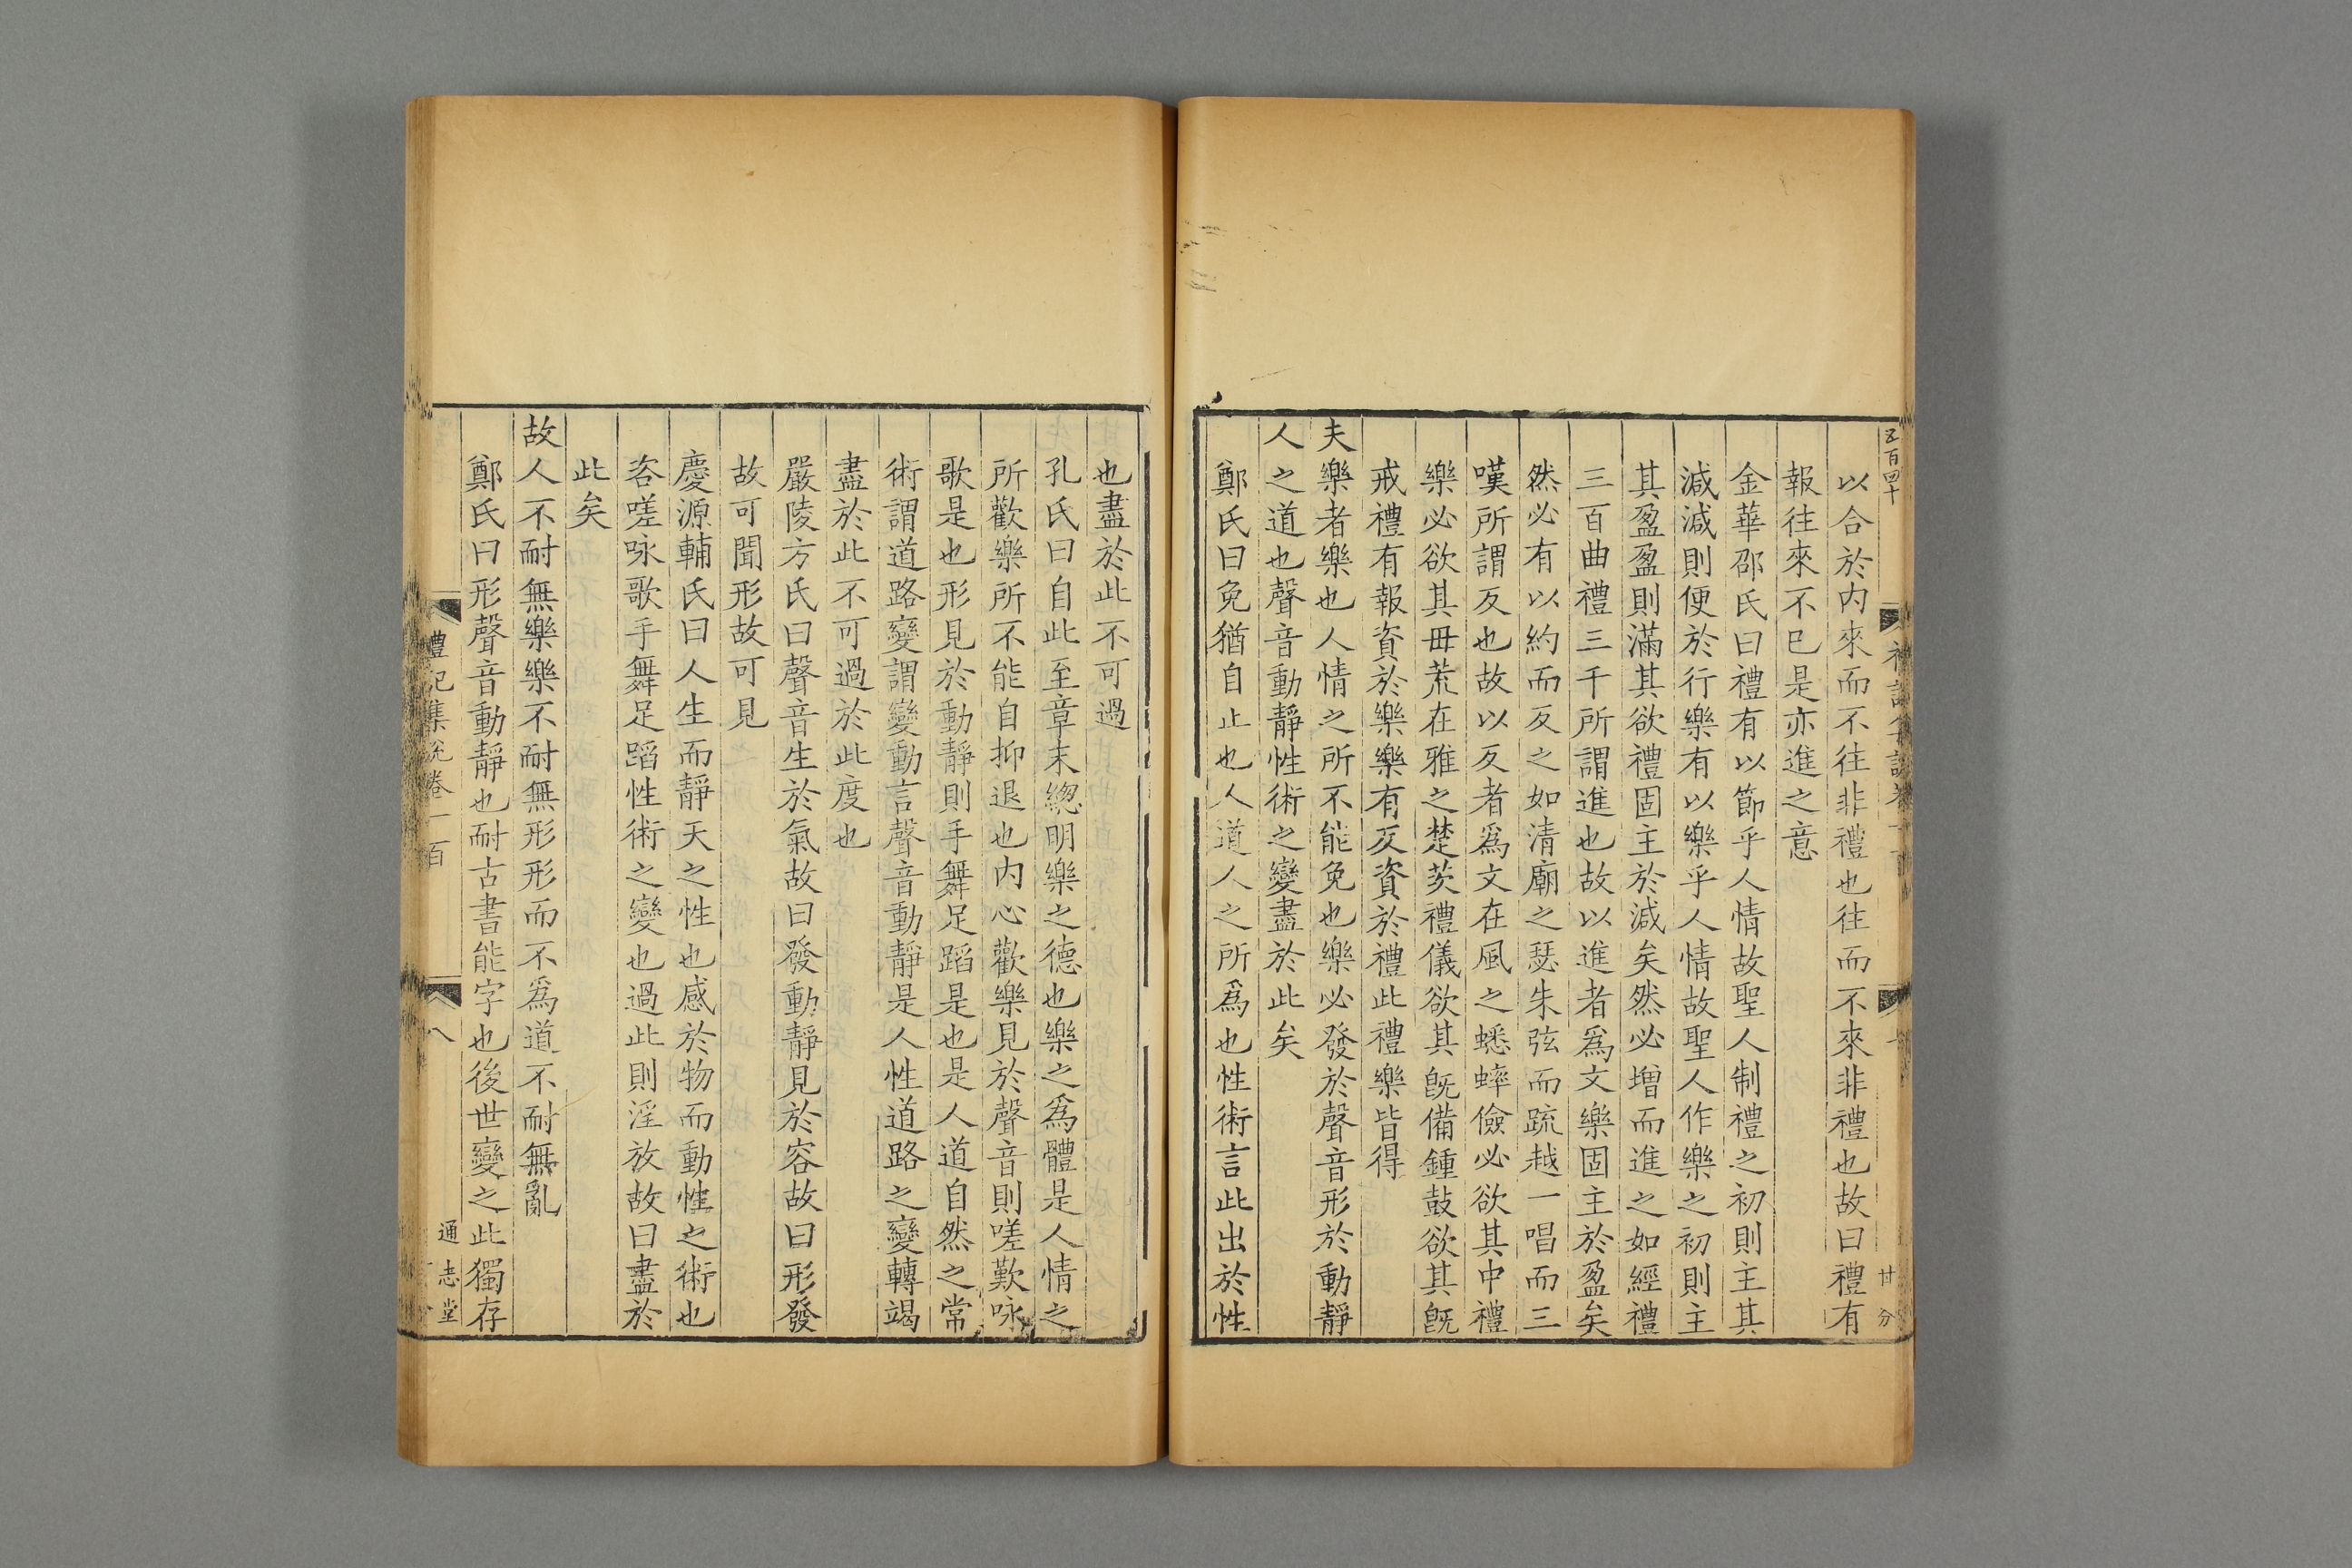 五百四十
以合於内來而不往非禮也往而不來非禮也故曰禮有
報往來不已是亦進之意
金華邵氏曰禮有以節乎人情故聖人制禮之初則主其
減減則便於行樂有以樂乎人情故聖人作樂之初則主
其盈盈則滿其欲禮固主於減矣然必增而進之如經禮
三百曲禮三千所謂進也故以進者爲文樂固主於盈矣
然必有以約而反之如清廟之瑟朱弦而疏越一唱而三
嘆所謂反也故以反者爲文在風之蟋蟀儉必欲其中禮
樂必欲其毋荒在雅之楚茨禮儀欲其旣備鍾鼓欲其旣
戒禮有報資於樂樂有反資於禮此禮樂皆得
夫樂者樂也人情之所不能免也樂必發於聲音形於動靜
人之道也聲音動靜性術之變盡於此矣
鄭氏曰免猶自止也人道人之所爲也性術言此出於性
也盡於此不可過
孔氏曰自此至章末緫明樂之德也樂之爲體是人情之
所歡樂所不能自抑退也内心歡樂見於聲音則嗟歎咏
歌是也形見於動靜則手舞足蹈是也是人道自然之常
術謂道路變謂變動言聲音動靜是人性道路之變轉竭
盡於此不可過於此度也
嚴陵方氏曰聲音生於氣故曰發動靜見於容故曰形發
故可聞形故可見
慶源輔氏曰人生而靜天之性也感於物而動性之術也
咨嗟咏歌手舞足蹈性術之變也過此則淫放故曰盡於
此矣
故人不耐無樂樂不耐無形形而不爲道不耐無亂
鄭氏曰形聲音動靜也耐古書能字也後世變之此獨存
禮記集說卷一百
八
通志堂